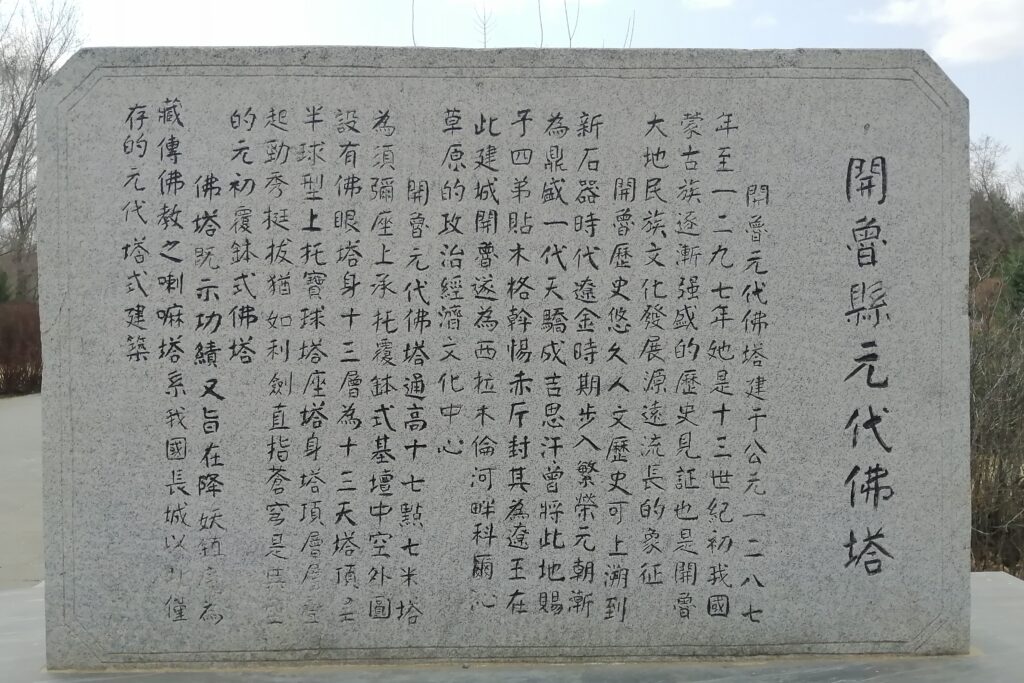 開魯縣元代佛塔
開魯元代佛塔建于公元一二八七
年至一二九七年她是十三世紀初我國
蒙古族逐漸强盛的歷史見証也是開魯
大地民族文化發展源遠流長的象征
開魯歷史悠久人文歷史可上溯到
新石器時代遼金時期步入繁榮元朝漸
為鼎盛一代天驕成吉思汗曾將此地賜
予四弟貼木格幹惕赤斤封其為遼王在
此建城開魯遂為西拉木倫河畔科爾沁
草原的政治經濟文化中心
開魯元代佛塔通高十七點七米塔
為須彌座上承托覆鉢式基壇中空外圓
設有佛眼塔身十三層為十三天塔頂呈
半球型上托寶球塔座塔身塔頂層層
起勁秀挺拔猶如利劍直指蒼穹是典
的元初覆鉢式佛塔
佛塔既示功績又旨在降妖鎮魔為
藏傳佛教之喇嘛塔系我國長城以外僅
存的元代塔式建築